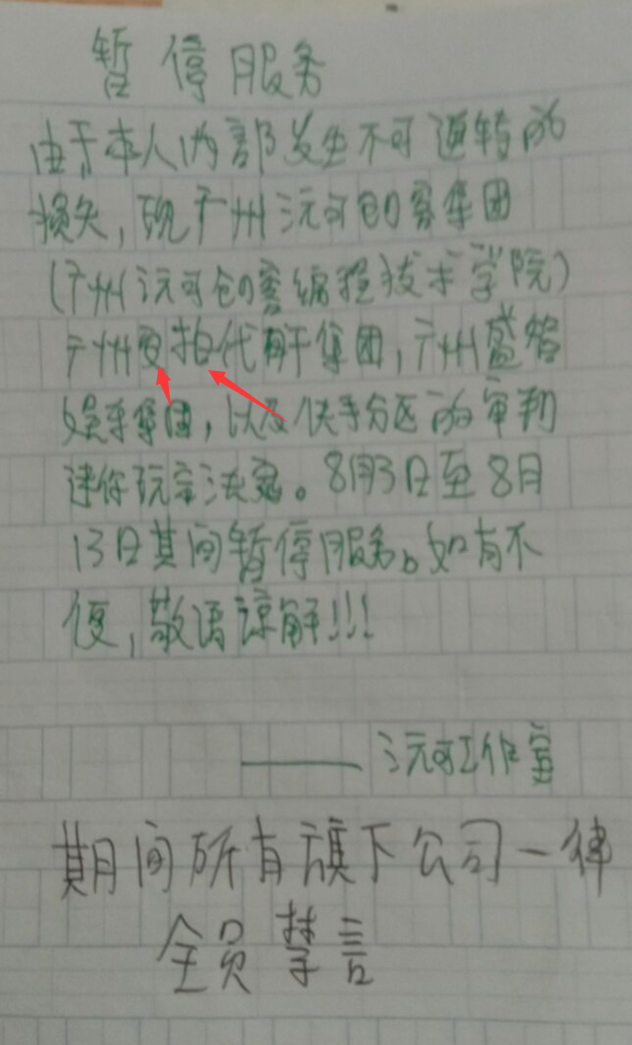 暂停服务
由于本人内部发生不可逆转的
损失,现广州沅可创客集团
(广州沅可创客编程技术学院)
广州 拍代 集团,广州盛焰
娱乐集团,以及快手分区的审判
迷你玩家决定。8月3日至8月
13日其间暂停服务。如有不
便,敬语谅解!!!
——沅可工作室
期间所有旗下公司一律
全员禁言